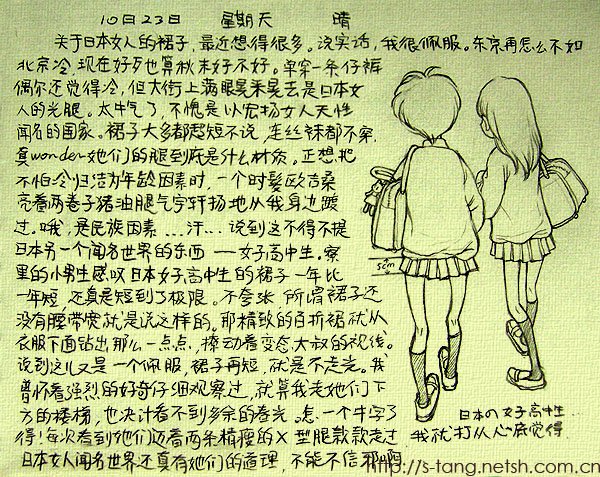 10日23日 星期天 晴
关于日本女人的裙子，最近想得很多。说实话，我很佩服。东京再怎么不如
北京冷 现在好歹也算秋末好不好。单穿一条仔裤
偶尔还觉得冷，但大街上满眼晃来晃去是日本女
人的光腿。太牛气了，不愧是以宏扬女人天性
闻名的国家。裙子大多都超短不说 连丝袜都不穿，
真wonder她们的腿到底是什么材质。正想把
不怕冷归结为年龄因素时，一个时髦欧吉桑
亮着两卷子猪油腿气宇轩扬地从我身边踱
过。哦，是民族因素...汗...说到这不得不提
日本另一个闻名世界的东西 ——女子高中生。寮
里的小男生感叹日本女子高中生的裙子一年比
一年短，还真是短到了极限。不夸张 所谓裙子还
没有腰带宽就是说这样的。那精致的百折裙就从
衣服下面钻出那么一点点，撩动着变态大叔的视线。
说到这儿又是一个佩服，裙子再短，就是不走光。我
曾怀着强烈的好奇仔细观察过，就算我走她们下
方的楼梯，也决计看不到多余的春光。怎一个牛字了
得！每次看到她们迈着两条精瘦的X型腿款款走过
我就打从心底觉得
日本女人闻名世界还真有她们的道理，不能不信邪啊
5cm
日本の女子高中生...
http://s-tang.netsh.com.cn